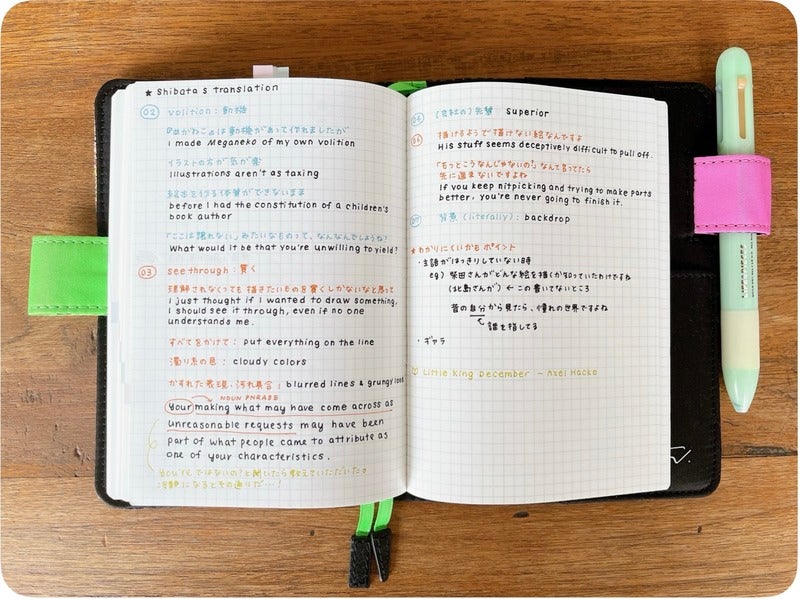 ★ Shibata's translation
02 volition : 動機
『めがねこ』は動機があって作れましたが
I made Meganeko of my own volition
イラストの方が気が楽
illustrations aren't as taxing
絵本を作る体質ができないまま
before I had the constitution of a children's
book author
「ここは譲れない」みたいなものって、なんなんでしょうね?
What would it be that you're unwilling to yield?
03 see through : 貫く
理解されなくても描きたいものを貫くしかないなと思って
I just thought if I wanted to draw something,
I should see it through, even if no one
understands me.
すべてをかけて : put everything on the line
濁り系の色 : cloudy colors
かすれた表現、汚れ具合 : blurred lines & grungy look
NOUN PHRASE
Your making what may have come across as
unreasonable requests may have been
part of what people came to attribute as
one of your characteristics.
You'reではないの?と聞いたら教えていただいた。
冷静になるとその通りだ…!
(会社の) 先輩 superior
06 描けるようで描けない絵なんですよ
His stuff seems deceptively difficult to pull off.
「もっとこうなんじゃないの?」なんて言ってたら
先に進まないですよね
If you keep nitpicking and trying to make parts
better, you're never going to finish it.
07 背景 (literally) : backdrop
★わかりにくいかもポイント
・主語がはっきりしていない時
eg) 柴田さんがどんな絵を描くか知っていたわけですね
(北島さんが) ← この書いてないところ
昔の自分から見たら、憧れの世界ですよね
誰を指してる
・ギャラ
Little King December ~ Axel Hacke